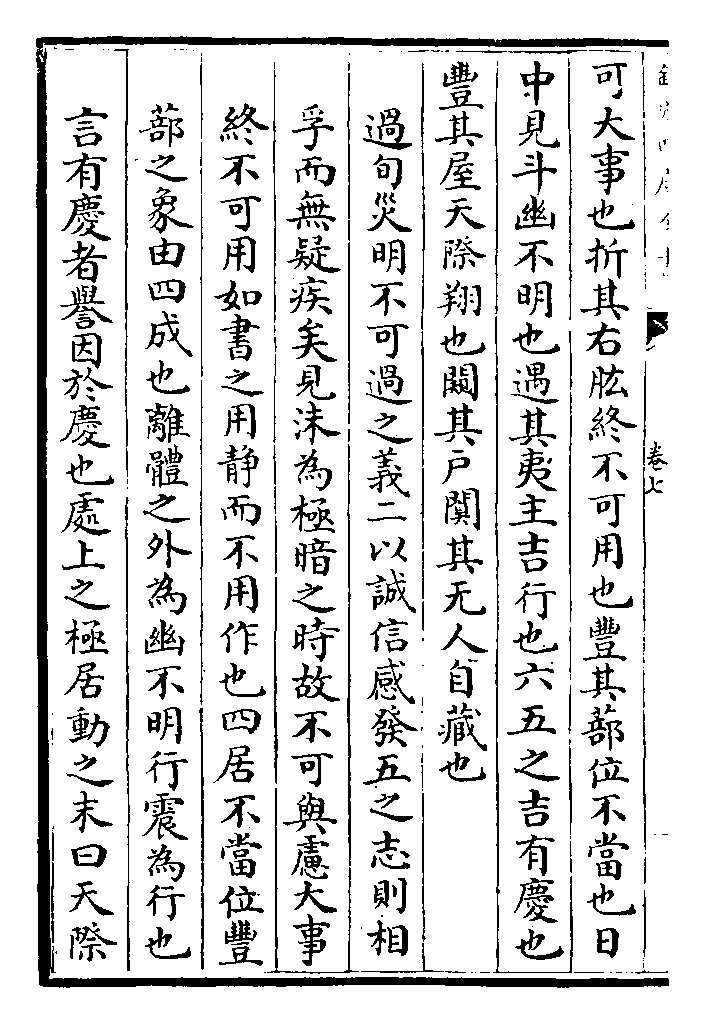 卷七
可大事也折其右肱終不可用也豐其蔀位不當也日
中見斗幽不明也遇其夷主吉行也六五之吉有慶也
豐其屋天際翔也闚其户闃其无人自藏也
過旬災明不可過之義二以誠信感發五之志則相
孚而無疑疾矣見沬為極暗之時故不可與慮大事
終不可用如書之用静而不用作也四居不當位豐
蔀之象由四成也離體之外為幽不明行震為行也
言有慶者譽因於慶也處上之極居動之末曰天際